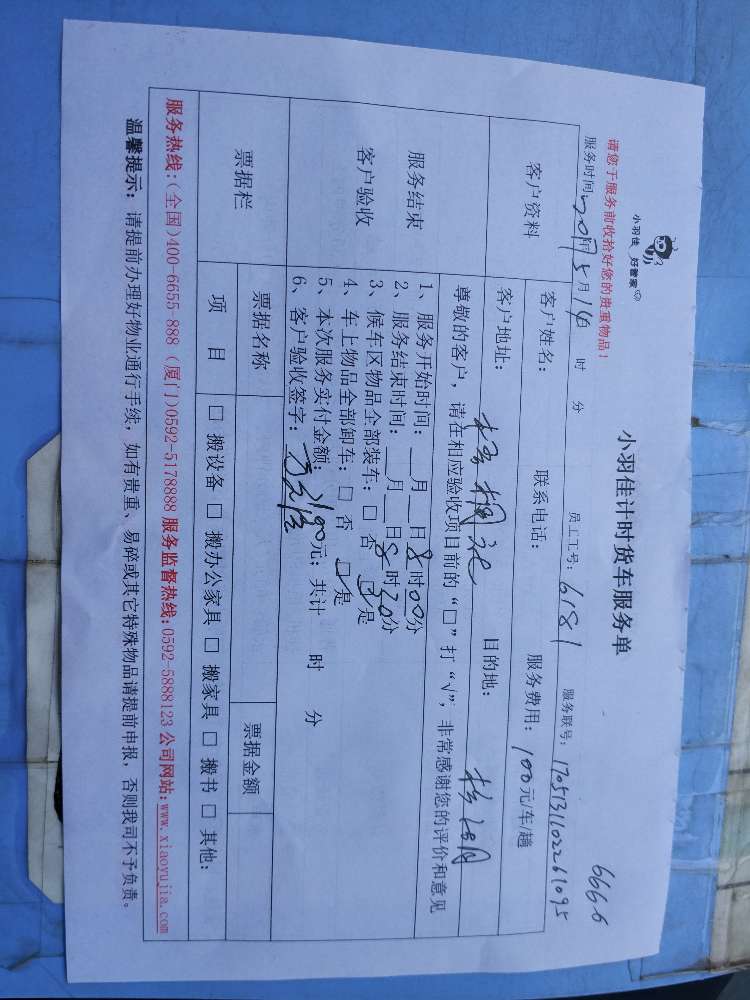 小羽佳 好管家
小羽佳计时货车服务单
6666
请您于服务前收拾好您的贵重物品!
服务时间: 2017年5月14日 时 分 员工工号: 6181 服务联号: 1705131102261095
客户资料 客户姓名: 联系电话: 服务费用: 100元/车/趟
客户地址: 目的地:
服务结束
客户验收
尊敬的客户, 请在相应验收项目前的“□”打“√”, 非常感谢您的评价和意见
1、服务开始时间: __月__日8时00分
2、服务结束时间: __月__日8时30分
3、候车区物品全部装车: □ 否 ☑ 是
4、车上物品全部卸车: □ 否 ☑ 是
5、本次服务实付金额: 100元; 共计 时 分
6、客户验收签字:
票据栏 票据名称 票据金额
项 目 □ 搬设备 □ 搬办公家具 □ 搬家具 □ 搬书 □ 其他:
服务热线:(全国)400-6655-888 (厦门)0592-5178888 服务监督热线:0592-5888123 公司网站:www.xiaoyujia.com
温馨提示: 请提前办理好物业通行手续, 如有贵重、易碎或其它特殊物品请提前申报, 否则我司不予负责。